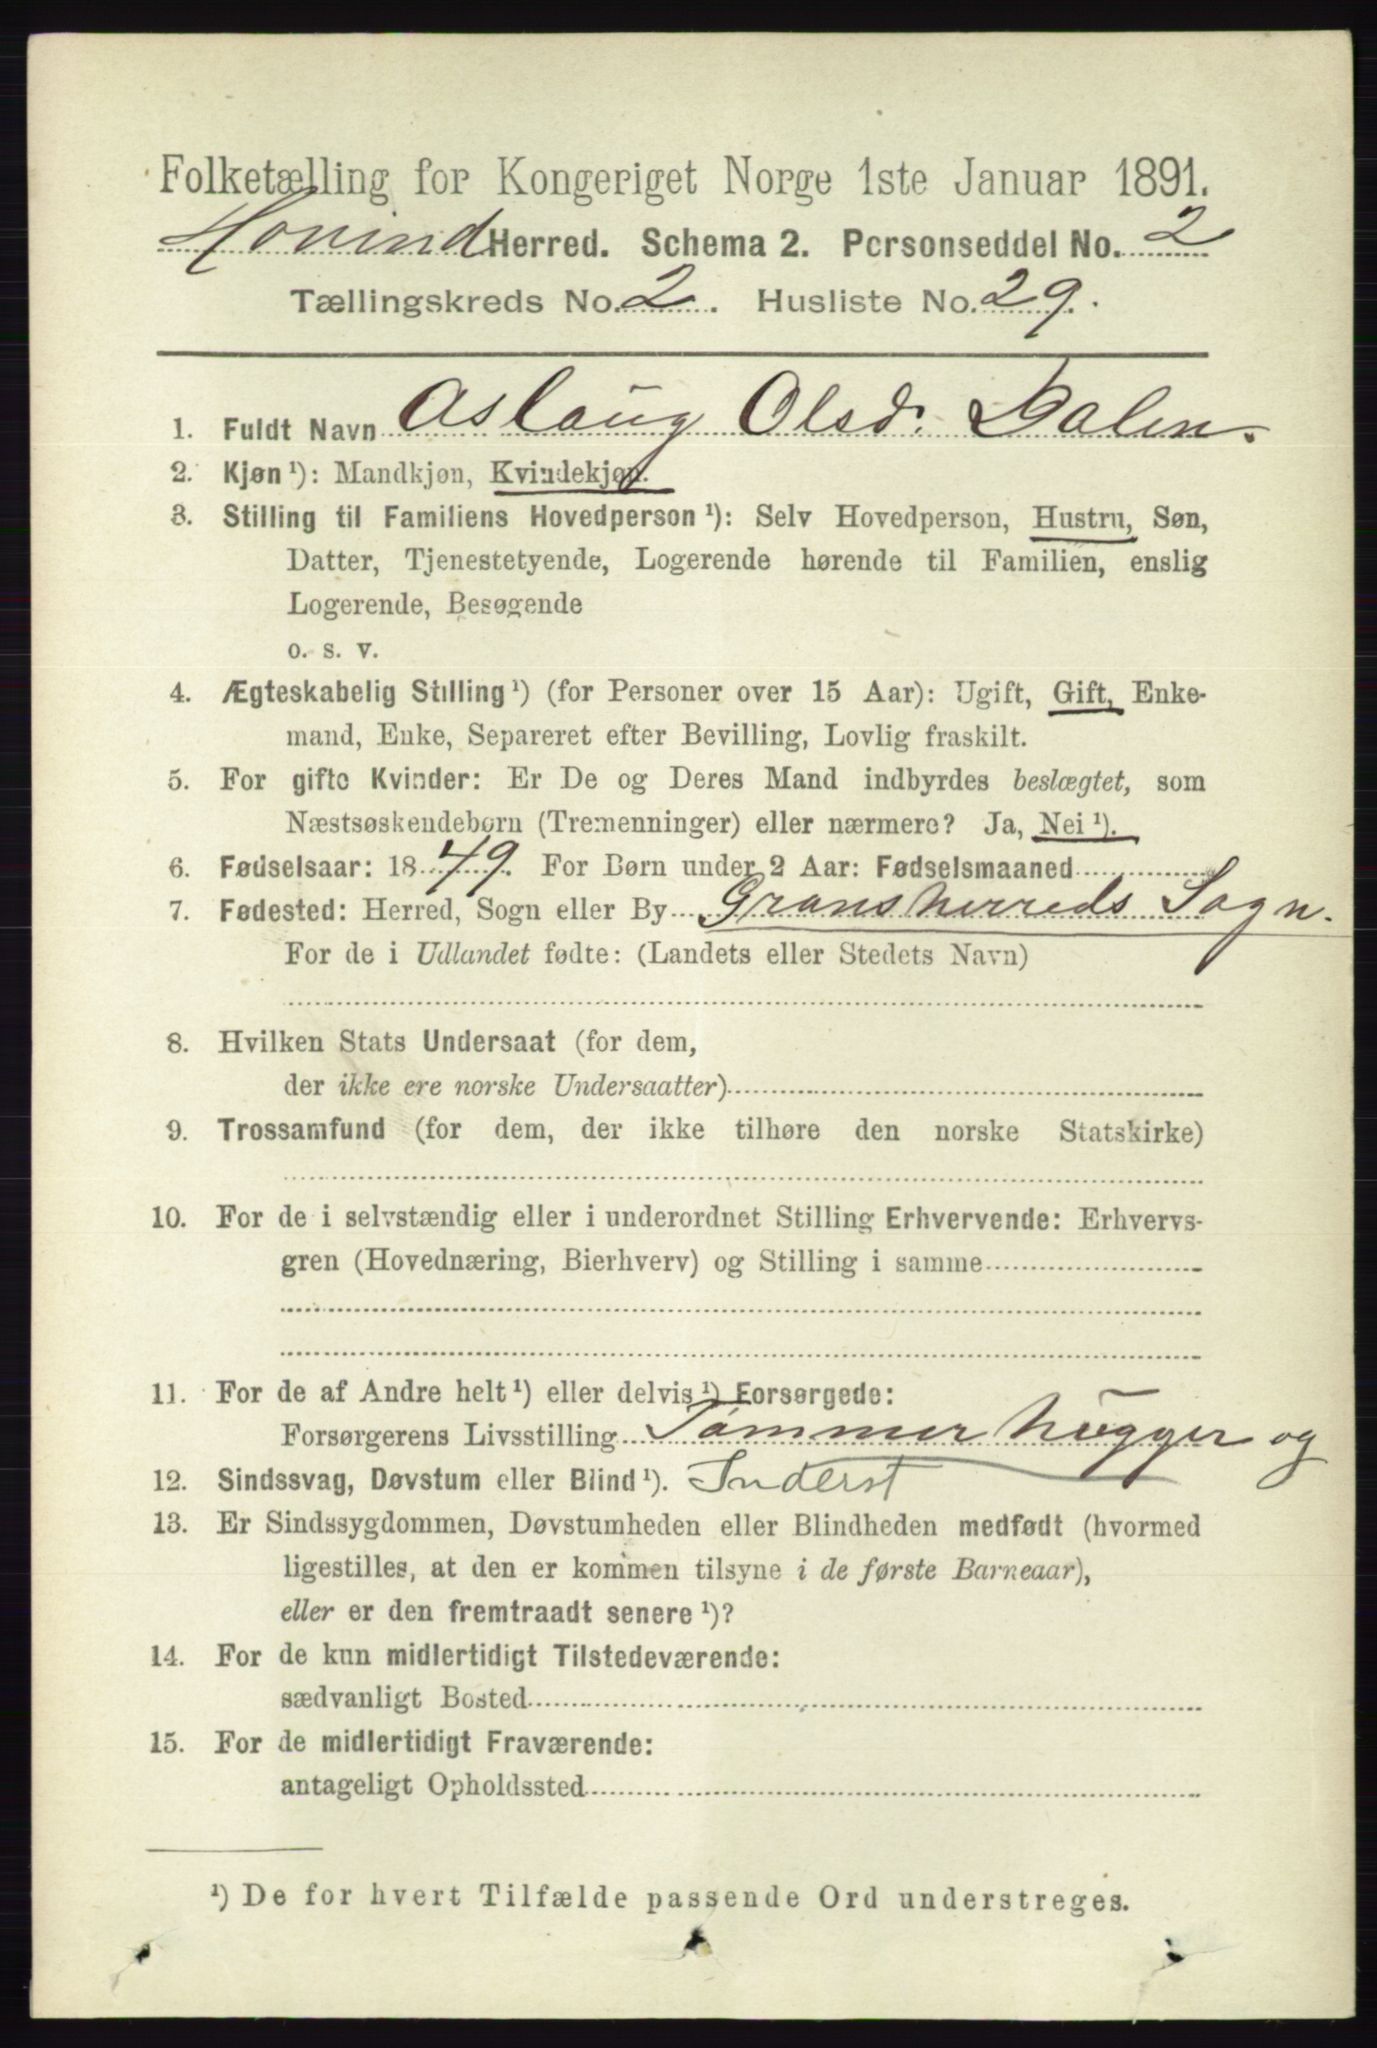 Folketælling for Kongeriget Norge 1ste Januar 1891.
Hovind Herred. Schema 2. Personseddel No. 2
Tællingskreds No. 2. Husliste No. 29.
1. Fuldt Navn Aslaug Olsd. Dalen.
2. Kjøn ¹): Mandkjøn, Kvindekjøn.
3. Stilling til Familiens Hovedperson ¹): Selv Hovedperson, Hustru, Søn,
Datter, Tjenestetyende, Logerende hørende til Familien, enslig
Logerende, Besøgende
o. s. v.
4. Ægteskabelig Stilling ¹) (for Personer over 15 Aar): Ugift, Gift, Enke-
mand, Enke, Separeret efter Bevilling, Lovlig fraskilt.
5. For gifte Kvinder: Er De og Deres Mand indbyrdes beslægtet, som
Næstsøskendebørn (Tremenninger) eller nærmere? Ja, Nei ¹).
6. Fødselsaar: 1849. For Børn under 2 Aar: Fødselsmaaned
7. Fødested: Herred, Sogn eller By Gransherreds Sogn.
For de i Udlandet fødte: (Landets eller Stedets Navn)
8. Hvilken Stats Undersaat (for dem,
der ikke ere norske Undersaatter)
9. Trossamfund (for dem, der ikke tilhøre den norske Statskirke)
10. For de i selvstændig eller i underordnet Stilling Erhvervende: Erhvervs-
gren (Hovednæring, Bierhverv) og Stilling i samme
11. For de af Andre helt ¹) eller delvis ¹) Forsørgede:
Forsørgerens Livsstilling Tømmerhugger og
12. Sindssvag, Døvstum eller Blind ¹). Inderst
13. Er Sindssygdommen, Døvstumheden eller Blindheden medfødt (hvormed
ligestilles, at den er kommen tilsyne i de første Barneaar),
eller er den fremtraadt senere ¹)?
14. For de kun midlertidigt Tilstedeværende:
sædvanligt Bosted
15. For de midlertidigt Fraværende:
antageligt Opholdssted
¹) De for hvert Tilfælde passende Ord understreges.